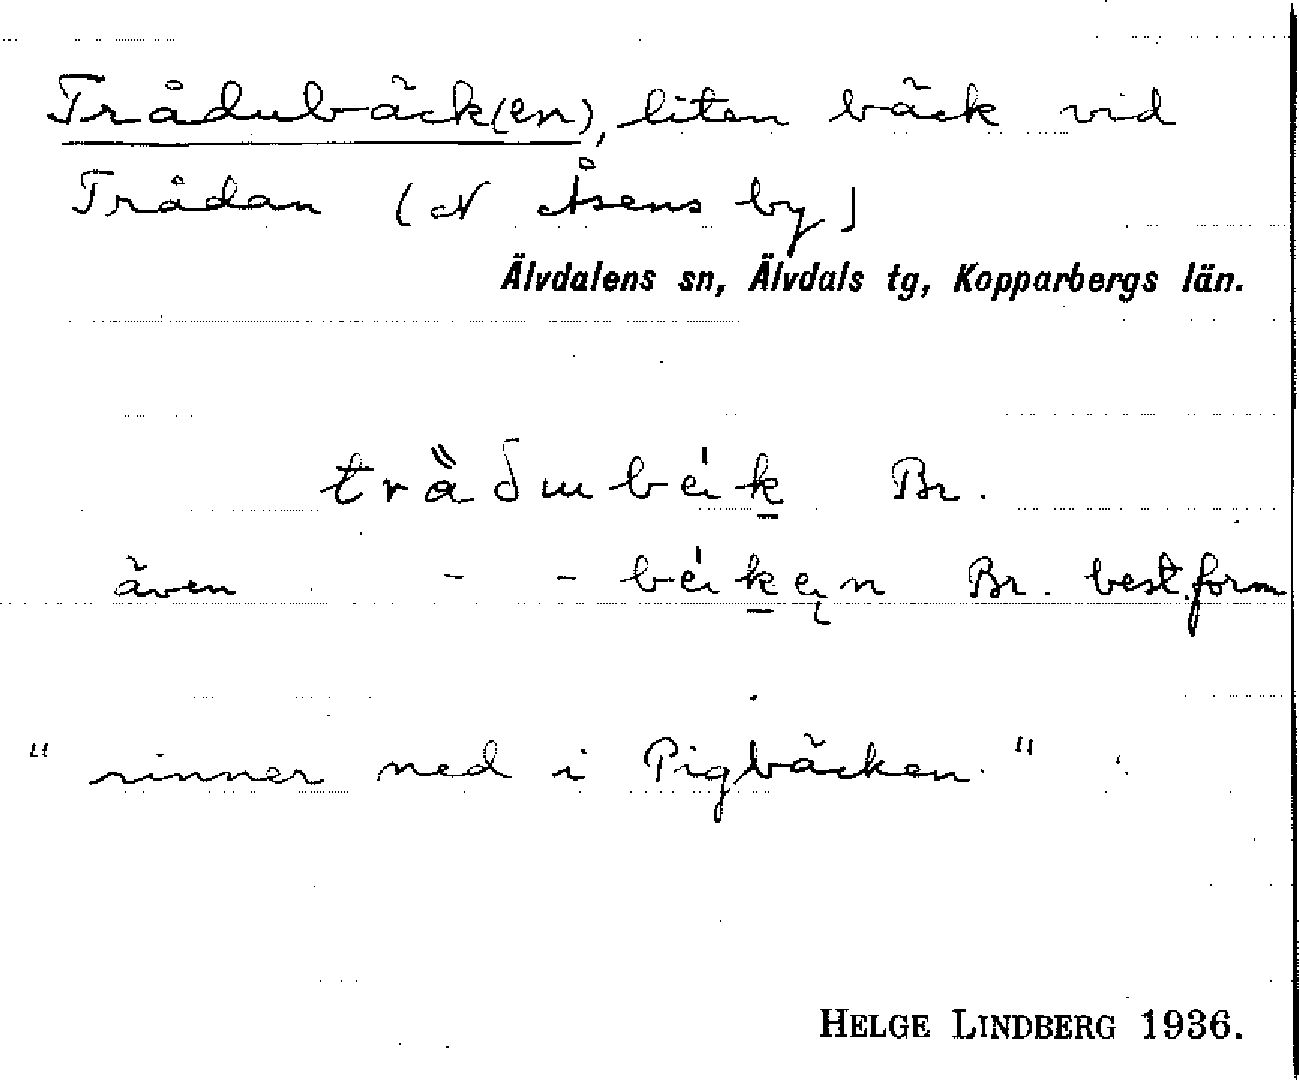 Trådubäck(en), liten bäck vid
Trådan (N Åsens by)
Älvdalens sn, Älvdals tg, Kopparbergs län.
Br.
även - - Br. best. form
"rinner ned i Pigbäcken."
HELGE LINDBERG 1936.